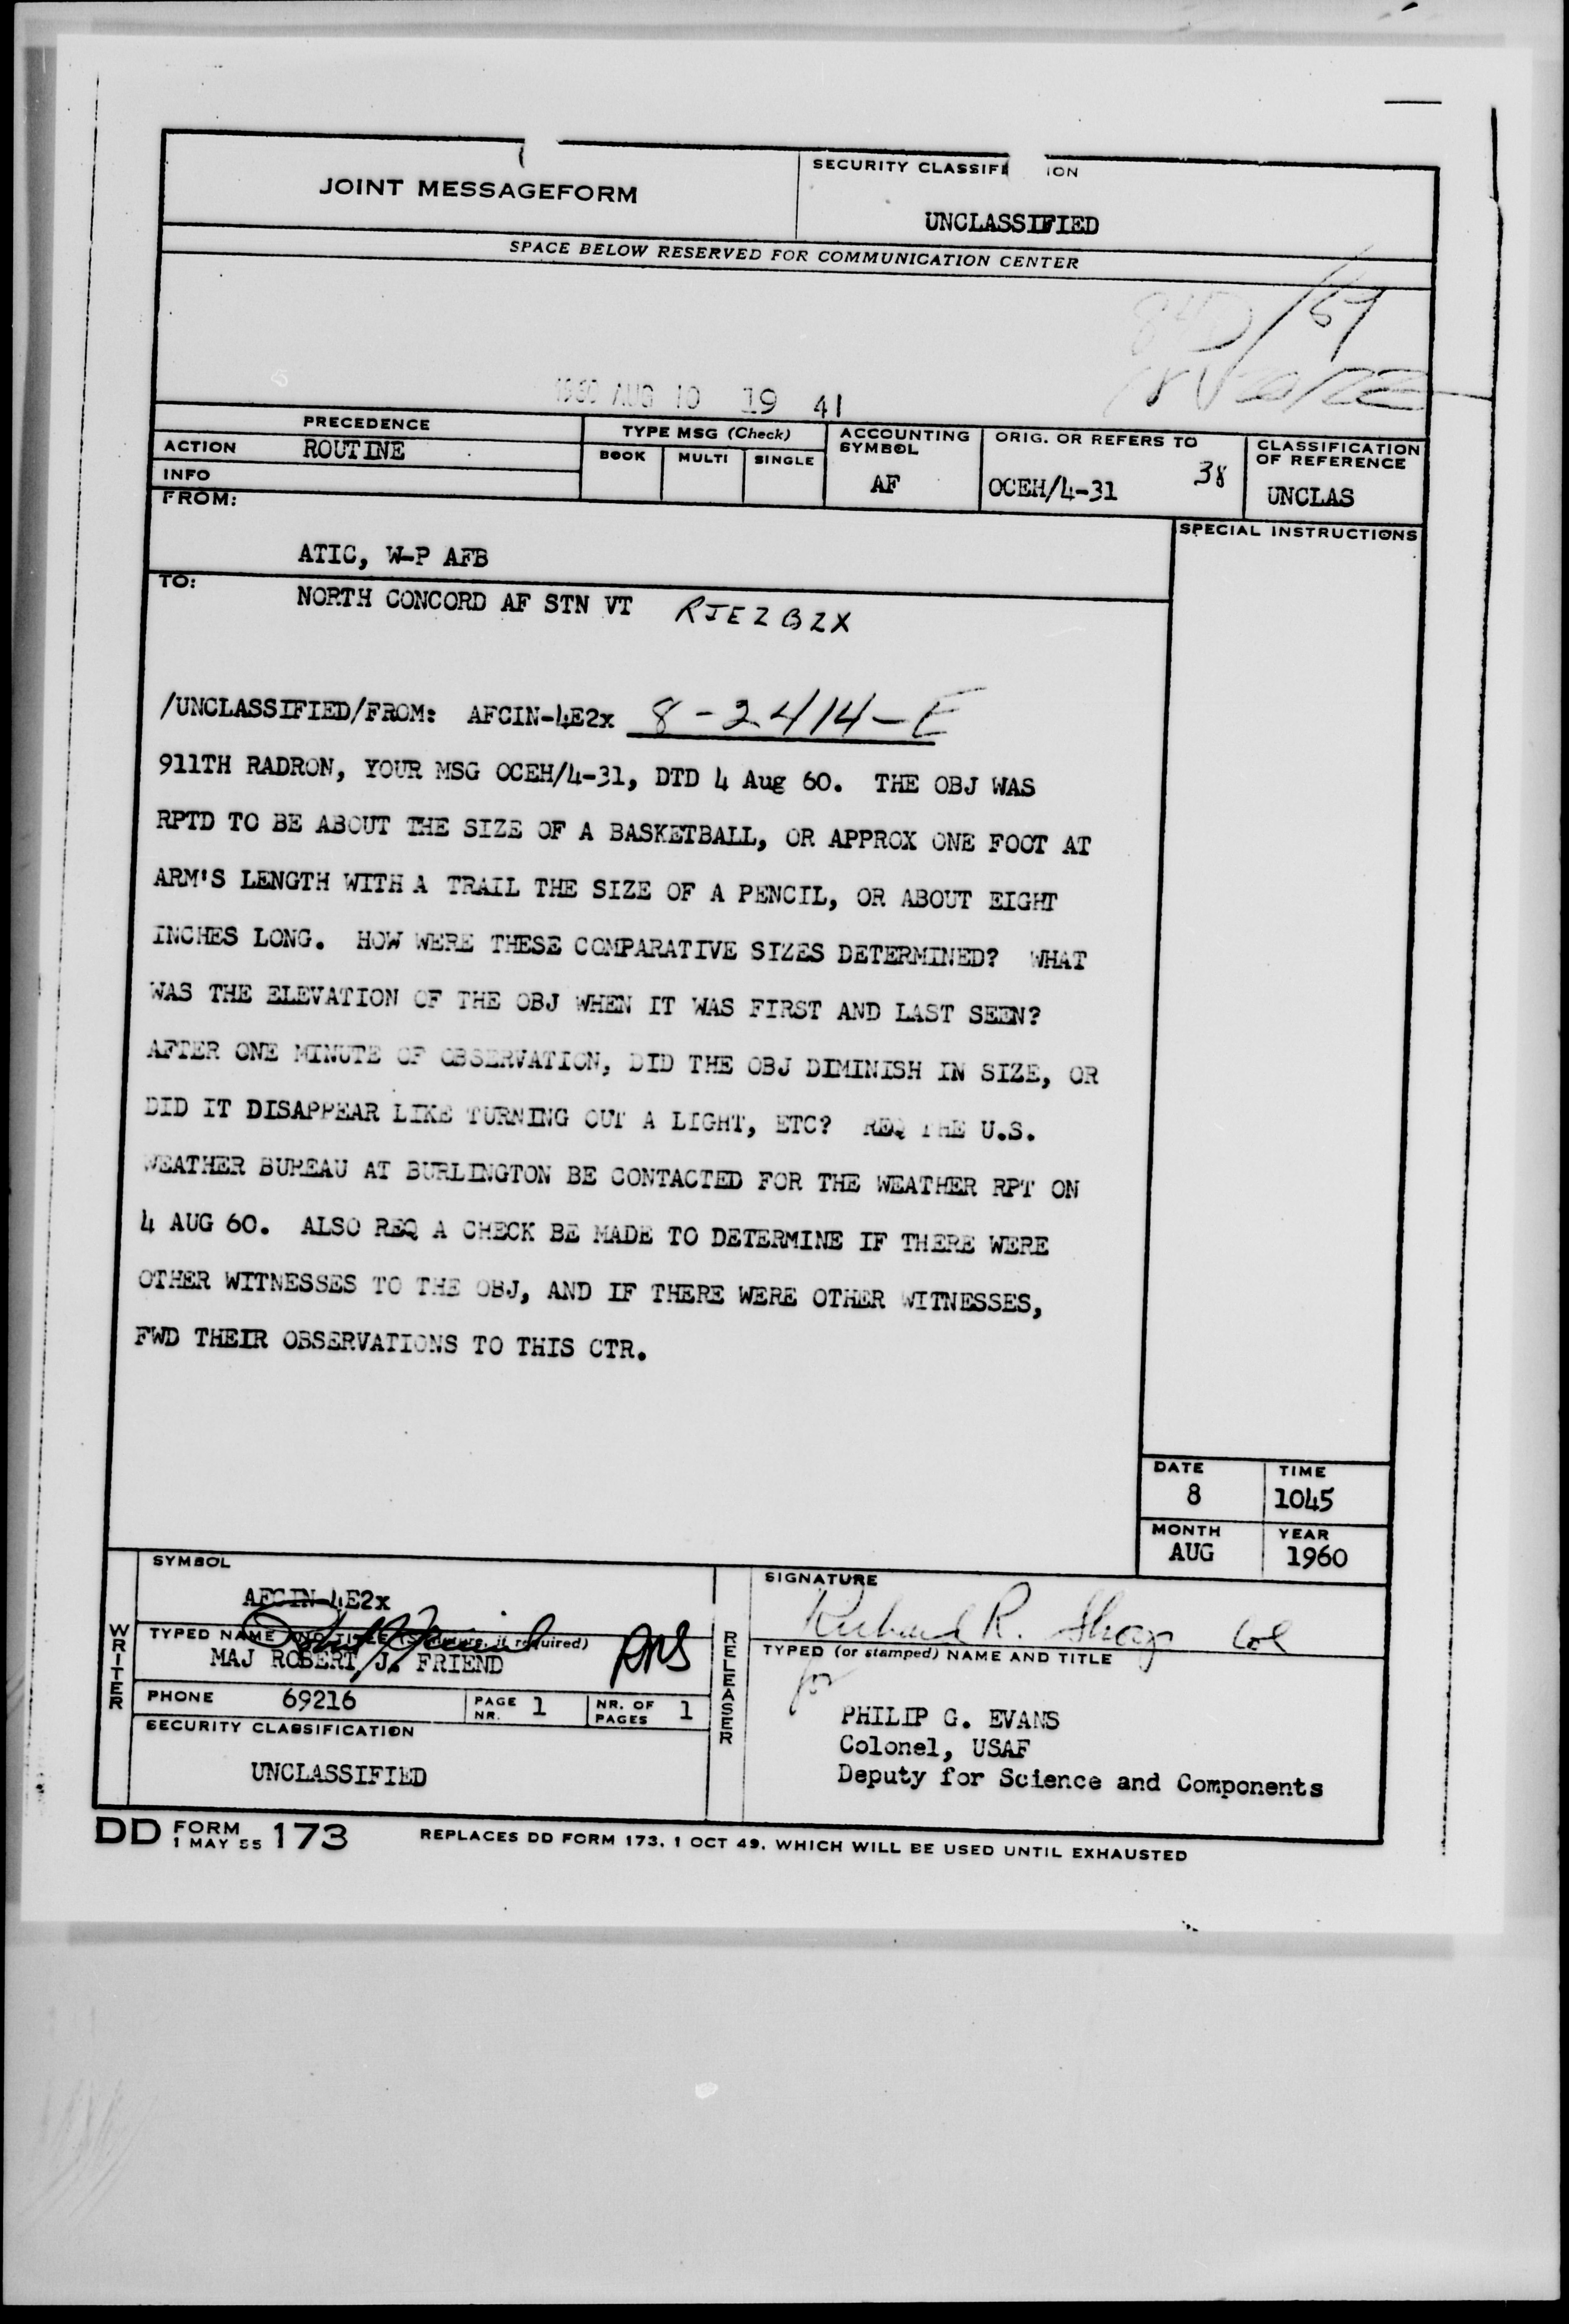 JOINT MESSAGEFORM
SECURITY CLASSIFI ION
UNCLASSIFIED
SPACE BELOW RESERVED FOR COMMUNICATION CENTER
1960 AUG 10 19 41
PRECEDENCE
ACTION ROUTINE
INFO
TYPE MSG (Check)
BOOK MULTI SINGLE
ACCOUNTING SYMBOL
AF
ORIG. OR REFERS TO
38
OCEH/4-31
CLASSIFICATION OF REFERENCE
UNCLAS
FROM:
ATIC, W-P AFB
SPECIAL INSTRUCTIONS
TO:
NORTH CONCORD AF STN VT RJEZBZX
/UNCLASSIFIED/FROM: AFCIN-4E2x 8-2414-E
911TH RADRON, YOUR MSG OCEH/4-31, DTD 4 Aug 60. THE OBJ WAS
RPTD TO BE ABOUT THE SIZE OF A BASKETBALL, OR APPROX ONE FOOT AT
ARM'S LENGTH WITH A TRAIL THE SIZE OF A PENCIL, OR ABOUT EIGHT
INCHES LONG. HOW WERE THESE COMPARATIVE SIZES DETERMINED? WHAT
WAS THE ELEVATION OF THE OBJ WHEN IT WAS FIRST AND LAST SEEN?
AFTER ONE MINUTE OF OBSERVATION, DID THE OBJ DIMINISH IN SIZE, OR
DID IT DISAPPEAR LIKE TURNING OUT A LIGHT, ETC? REQ THE U.S.
WEATHER BUREAU AT BURLINGTON BE CONTACTED FOR THE WEATHER RPT ON
4 AUG 60. ALSO REQ A CHECK BE MADE TO DETERMINE IF THERE WERE
OTHER WITNESSES TO THE OBJ, AND IF THERE WERE OTHER WITNESSES,
FWD THEIR OBSERVATIONS TO THIS CTR.
DATE TIME
8 1045
MONTH YEAR
AUG 1960
WRITER
SYMBOL
AFCIN-4E2x
TYPED NAME AND TITLE (Signature, if required)
MAJ ROBERT J. FRIEND
PHONE 69216
PAGE NR. 1
NR. OF PAGES 1
SECURITY CLASSIFICATION
UNCLASSIFIED
RELEASER
SIGNATURE
Richard R. Shoop Col
TYPED (or stamped) NAME AND TITLE
for
PHILIP G. EVANS
Colonel, USAF
Deputy for Science and Components
DD FORM 1 MAY 55 173
REPLACES DD FORM 173, 1 OCT 49, WHICH WILL BE USED UNTIL EXHAUSTED